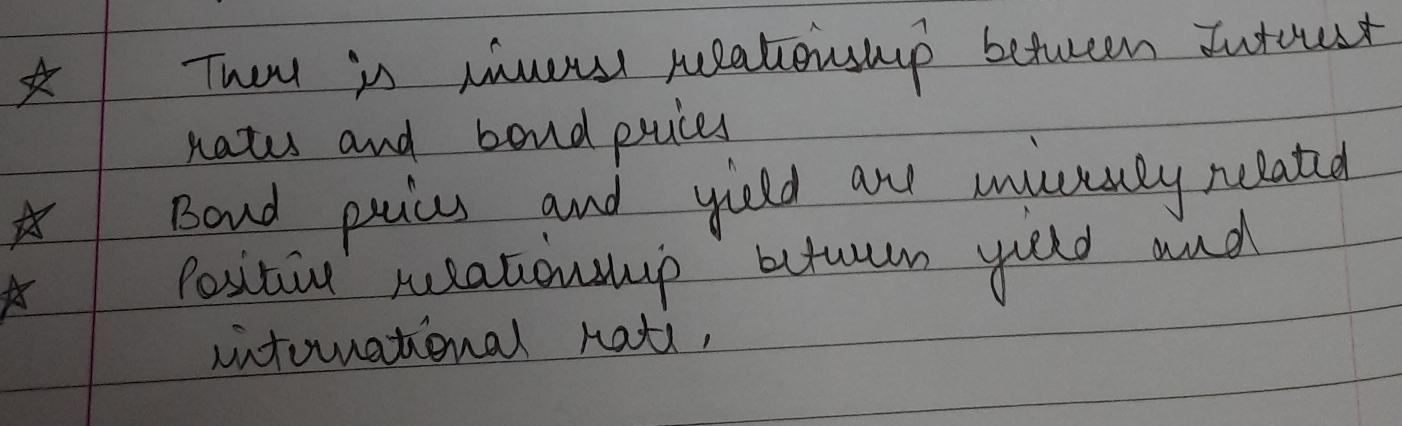 ☆ There is inverse relationship between Interest
rates and bond prices
☆ Bond prices and yield are inversely related
☆ Positive relationship between yield and
international rate.